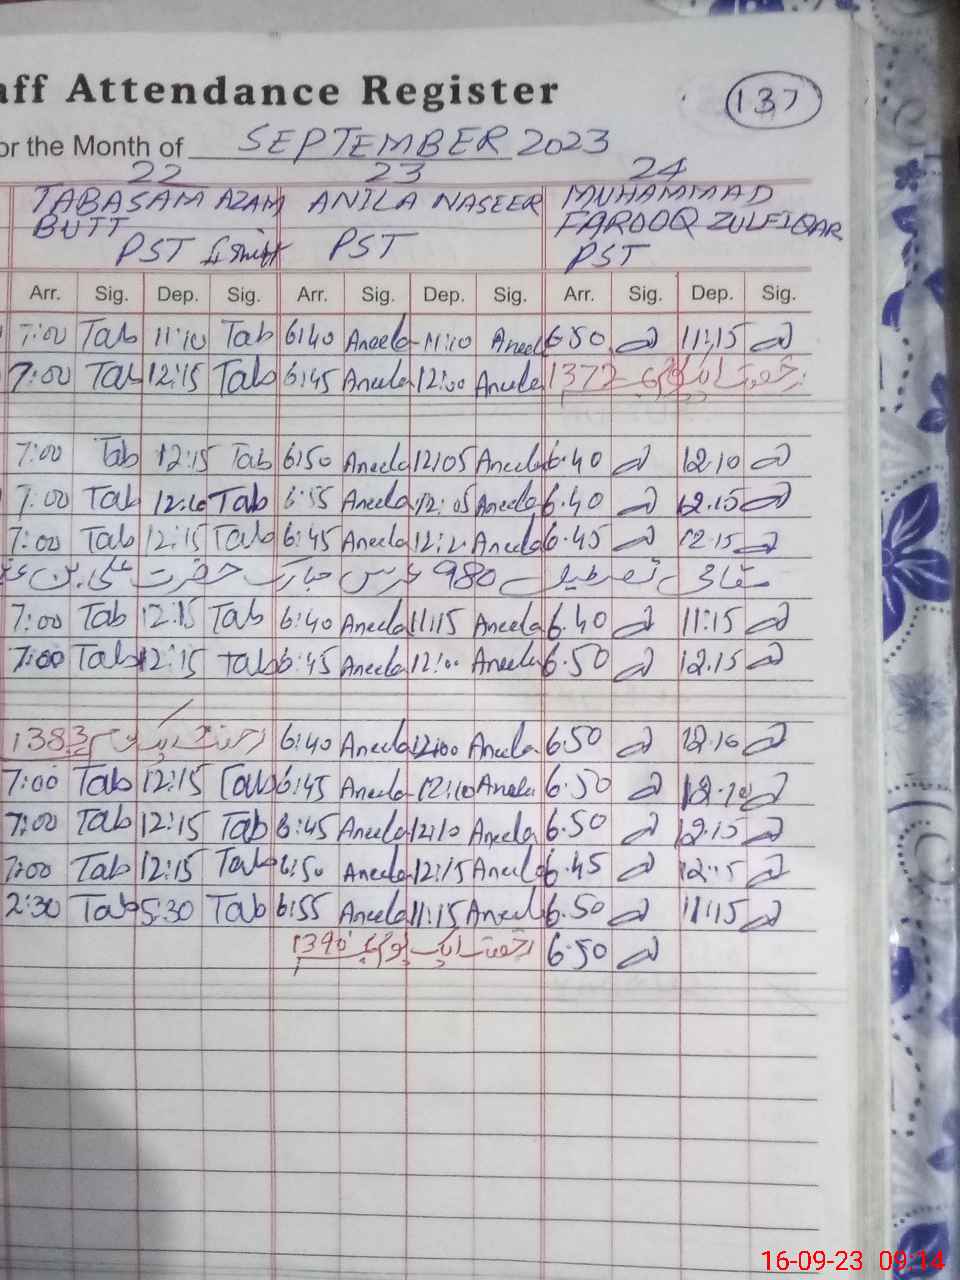 aff Attendance Register
137
or the Month of SEPTEMBER 2023
22 23 24
TABASAM AZAM BUTT ANILA NASEER MUHAMMAD FAROOQ ZULFIQAR
PST PST PST
Arr. Sig. Dep. Sig. Arr. Sig. Dep. Sig. Arr. Sig. Dep. Sig.
7:00 Tab 11:10 Tab 6:40 Aneela 11:10 Aneela 6.50 11:15
7:00 Tab 12:15 Tab 6:45 Aneela 12:00 Aneela رخصت ایک یوم 1372
7:00 Tab 12:15 Tab 6:50 Aneela 12:05 Aneela 6.40 12.10
7:00 Tab Tab 6:55 Aneela 12:05 Aneela 6.40 12.15
7:00 Tab 12:15 Tab 6:45 Aneela Aneela 6.45 12.15
مقامی تعطیل 980 عرس مبارک حضرت علی بن
7:00 Tab 12:15 Tab 6:40 Aneela 11:15 Aneela 6.40 11:15
7:00 Tab 12:15 Tab 6:45 Aneela 12:00 Aneela 6.50 12.15
رخصت ایک یوم 1383 6:40 Aneela 12:00 Aneela 6.50 12.10
7:00 Tab 12:15 Tab 6:45 Aneela 12:10 Aneela 6.50
7:00 Tab 12:15 Tab 6:45 Aneela 12:10 Aneela 6.50 12.15
7:00 Tab 12:15 Tab 6:50 Aneela 12:15 Aneela 6.45 12.15
2:30 Tab 5:30 Tab 6:55 Aneela 11:15 Aneela 6.50 11:15
رخصت ایک یوم 1390 6.50
16-09-23 09:14